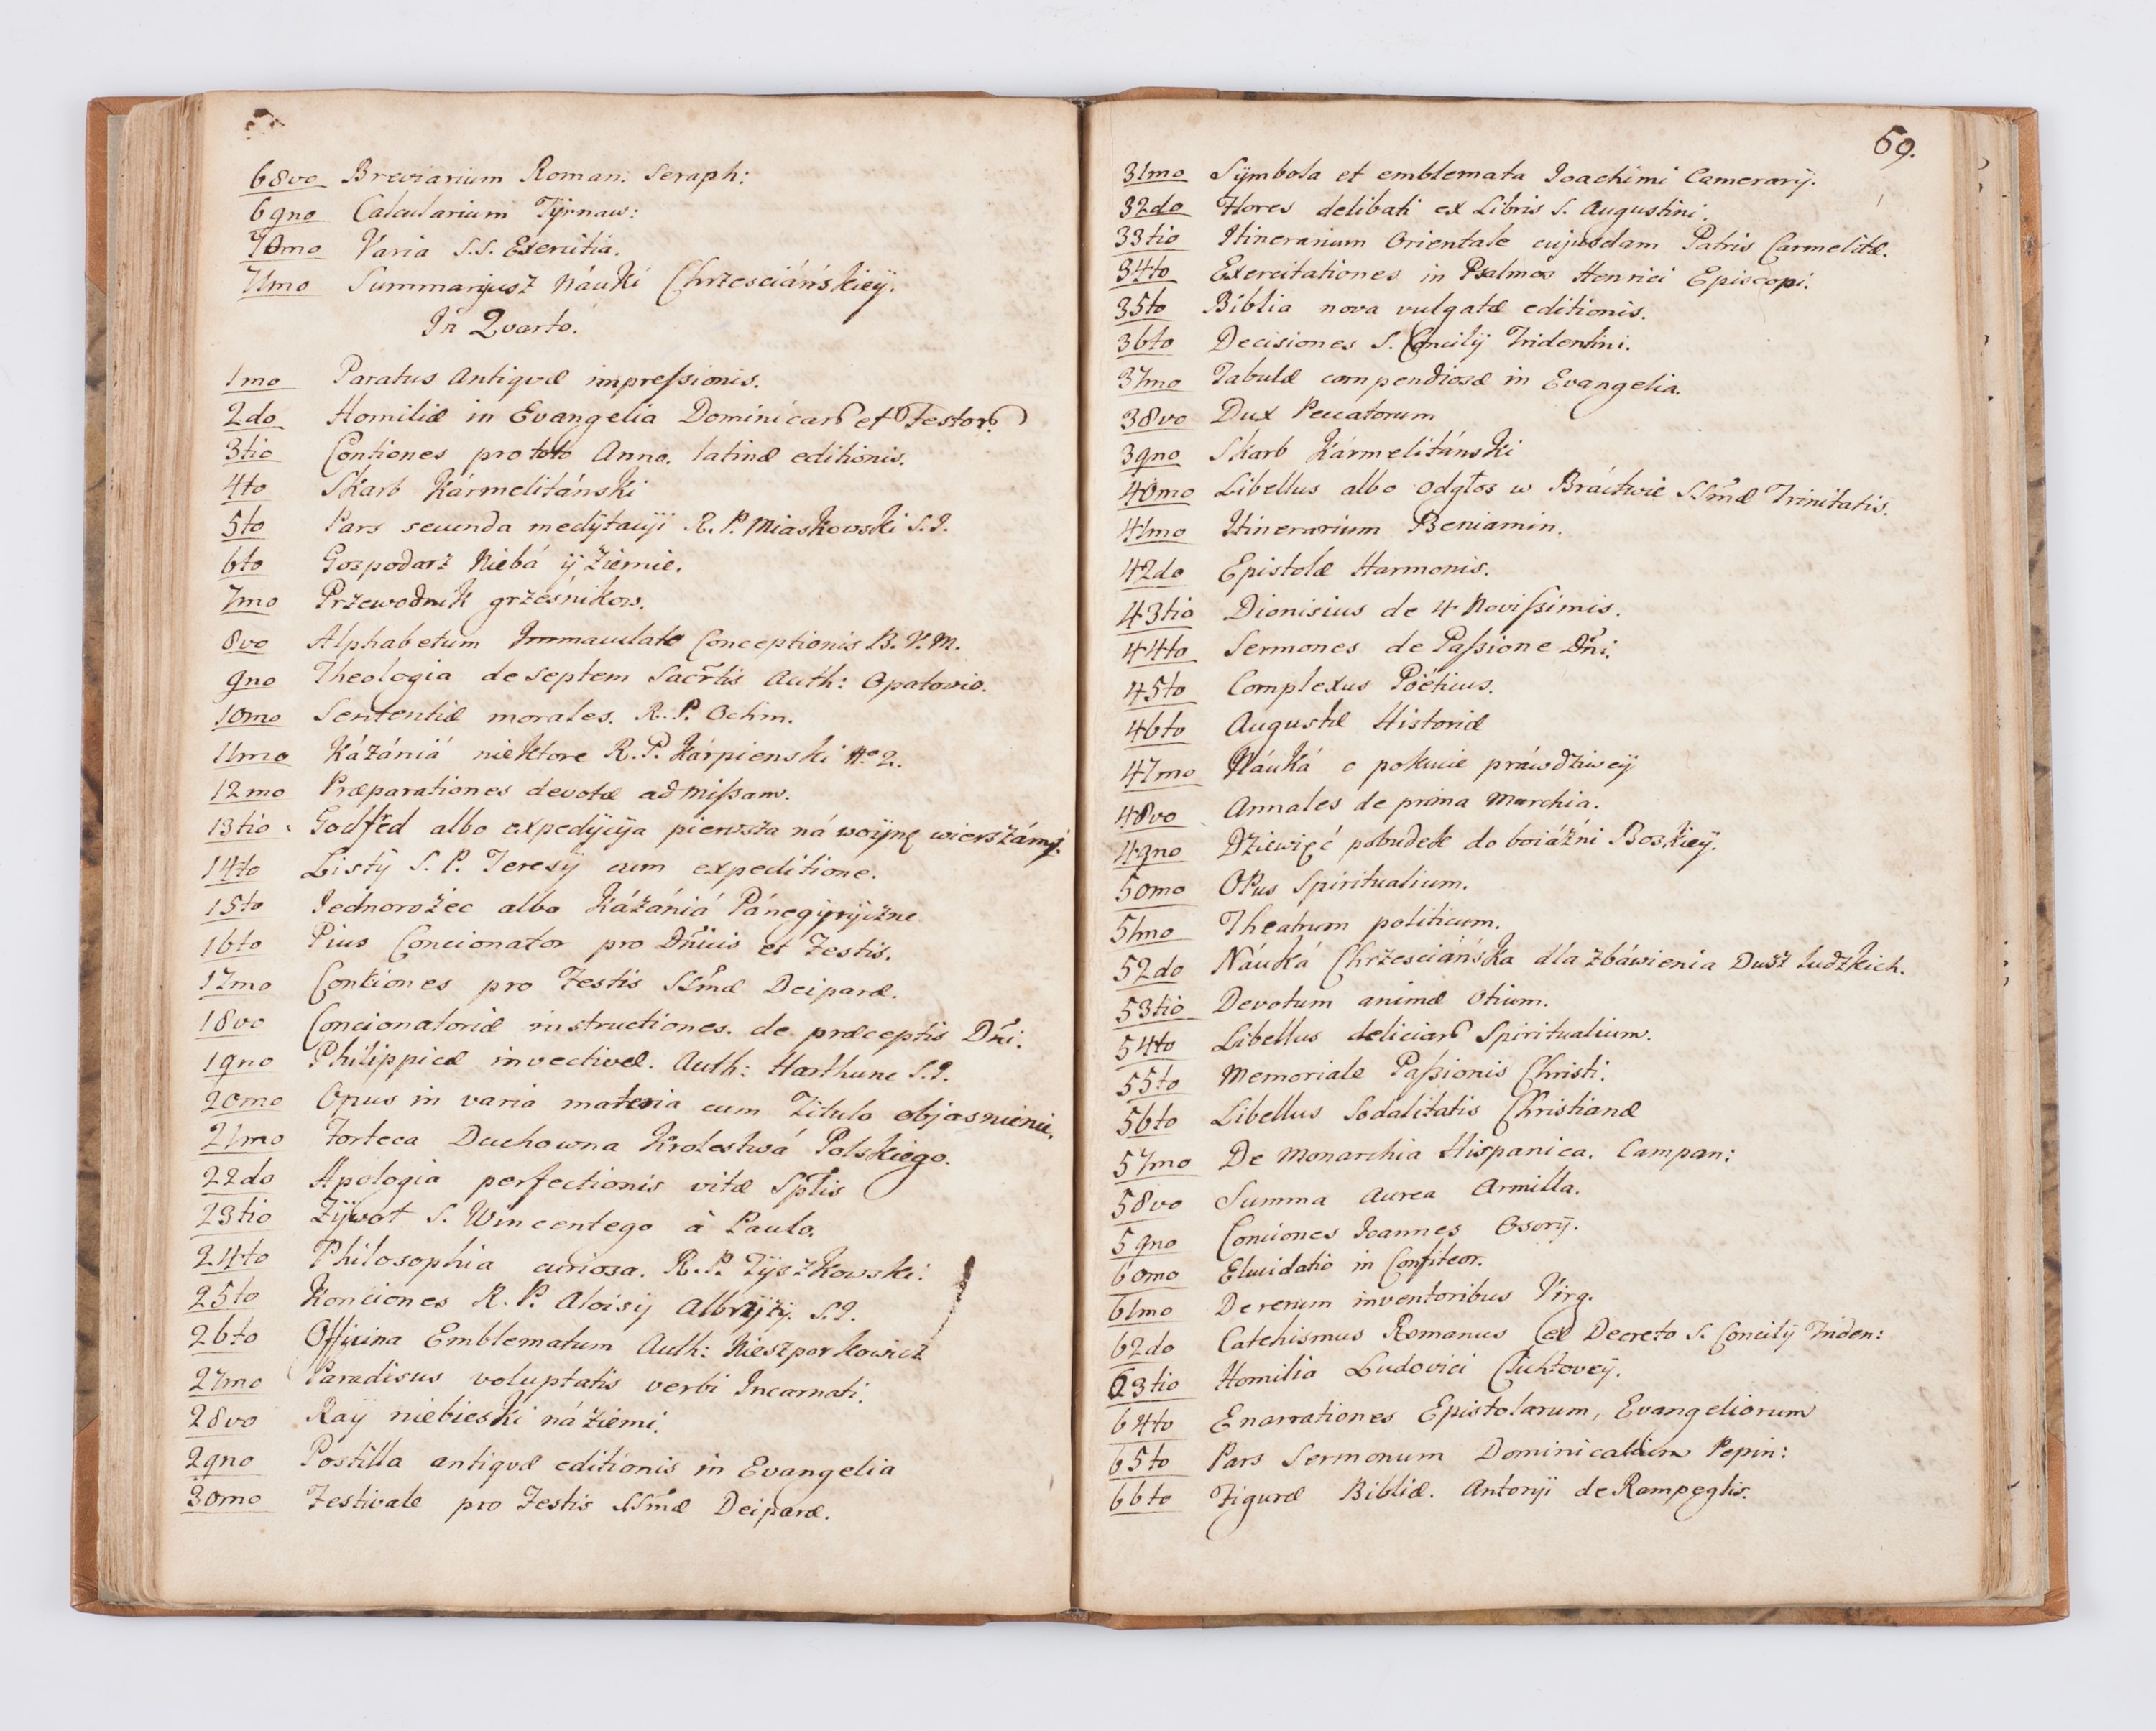 68vo Breviarium Roman: Seraph:
69no Calcularium Tÿrnaw:
70mo Varia S.S. Exercitia.
71mo Summaryusz Náuki Chrzesciáńskieÿ.
In Quarto.
1mo Paratus Antiquæ impressionis.
2do Homiliæ in Evangelia Dominicar et Festor.
3tio Contiones pro toto Anno. latinæ editionis.
4to Skarb Kármelitánski
5to Pars secunda medÿtacÿi R. P. Miaskowski S. I.
6to Gospodarz Niebá ÿ Ziemie.
7mo Przewodnik grzésnikow.
8vo Alphabetum Immaculate Conceptionis B. V. M.
9no Theologia de septem Sacrtis Auth: Opatovio.
10mo Sententiæ morales. R. P. Ochm.
11mo Kázániá niektore R. P. Kárpienski No 2.
12mo Præparationes devotæ ad Missam.
13tio Godfred albo expedÿcÿa pierwsza ná woÿnę wierszámi.
14to Listÿ S. P. Teresÿ cum expeditione.
15to Iednorożec albo Kázániá Pánegÿrÿczne
16to Pius Concionator pro Dnicis et Festis.
17mo Contiones pro Festis SSmæ Deiparæ.
18vo Concionatoriæ instructiones. de præceptis Dni.
19no Philippicæ invectivæ. Auth: Harthune S. I.
20mo Opus in varia materia cum Titulo objasnienie.
21mo Forteca Duchowna Krolestwá Polskiego.
22do Apologia perfectionis vitæ Sptis
23tio Zÿwot S. Wincentego à Paulo.
24to Philosophia curiosa. R. P. Tÿszkowski:
25to Konciones R. P. Aloisÿ Albrÿzÿ. S. I.
26to Officina Emblematum Auth: Nieszporkowicz
27mo Paradisus voluptatis verbi Incarnati.
28vo Raÿ niebieski ná ziemi.
29no Postilla antiquæ editionis in Evangelia
30mo Festivale pro Festis SSmæ Deiparæ.
59.
31mo Sÿmbola et emblemata Ioachimi Camerarÿ.
32do Flores delibati ex Libris S. Augustini.
33tio Itinerarium Orientale cujusdam Patris Carmelitæ.
34to Exercitationes in Psalmos Henrici Episcopi.
35to Biblia nova vulgatæ editionis.
36to Decisiones S. Concilÿ Tridentini.
37mo Tabulæ compendiosæ in Evangelia.
38vo Dux Peccatorum
39no Skarb Kármelitánski
40mo Libellus albo odgłos w Bráctwie SSmæ Trinitatis.
41mo Itinerarium Beniamin.
42do Epistolæ Harmonis.
43tio Dionisius de 4 Novissimis.
44to Sermones de Passione Dni.
45to Complexus Pöeticus.
46to Augustæ Historiæ
47mo Náuká o pokucie práwdziweÿ
48vo Annales de prima Marchia.
49no Dziewięć pobudek do boiáźni Boskieÿ.
50mo Opus Spiritualium.
51mo Theatrum politicum.
52do Náuká Chrzesciáńska dla zbáwienia Dusz ludzkich.
53tio Devotum animæ otium.
54to Libellus deliciar Spiritualium.
55to Memoriale Passionis Christi.
56to Libellus Sodalitatis Christianæ
57mo De Monarchia Hispanica. Campan:
58vo Summa aurea Armilla.
59no Conciones Ioannes Osorÿ.
60mo Elucidatio in Confiteor.
61mo De rerum inventoribus Virg.
62do Catehismus Romanus ex Decreto S. Concilÿ Triden:
63tio Homilia Ludovici Clicktoveÿ.
64to Enarrationes Epistolarum, Evangeliorum
65to Pars Sermonum Dominicalium Pepin:
66to Figuræ Bibliæ. Antonÿi de Rampeglis.